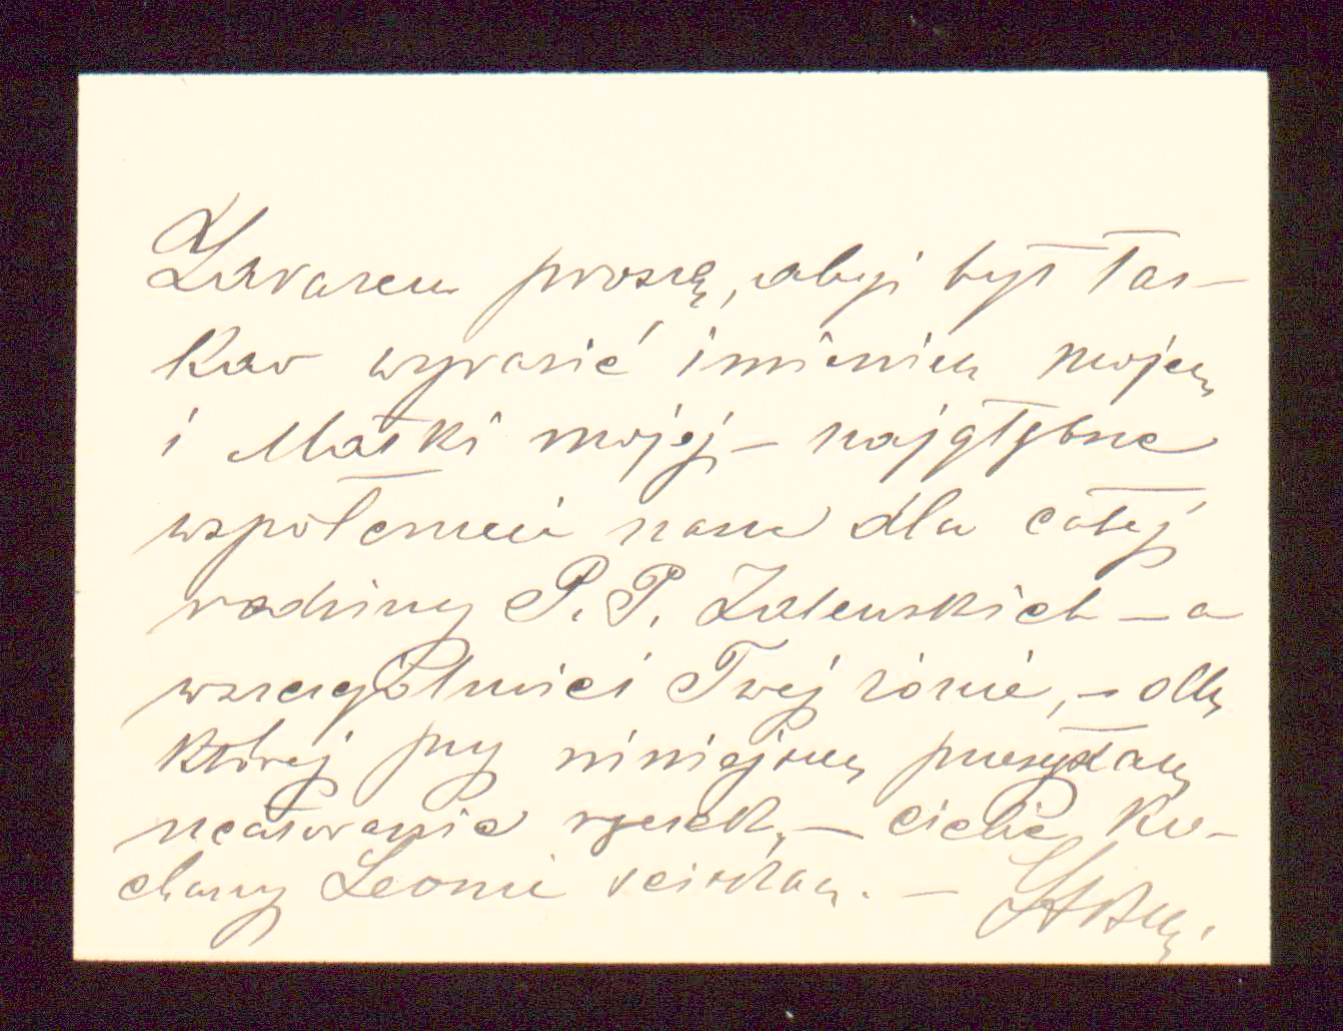 Zarazem proszę, abyś był łas-
kaw wyrazić imieniem mojem
i Matki mojej – najgłębsze
współczucie nasze dla całej
rodziny P. P. Zalewskich – a
wszczególności Twej żonie, – dla
której przy niniejszem przesyłam
ucałowanie rączek, – ciebie ko-
chany Leonie ściskam. –